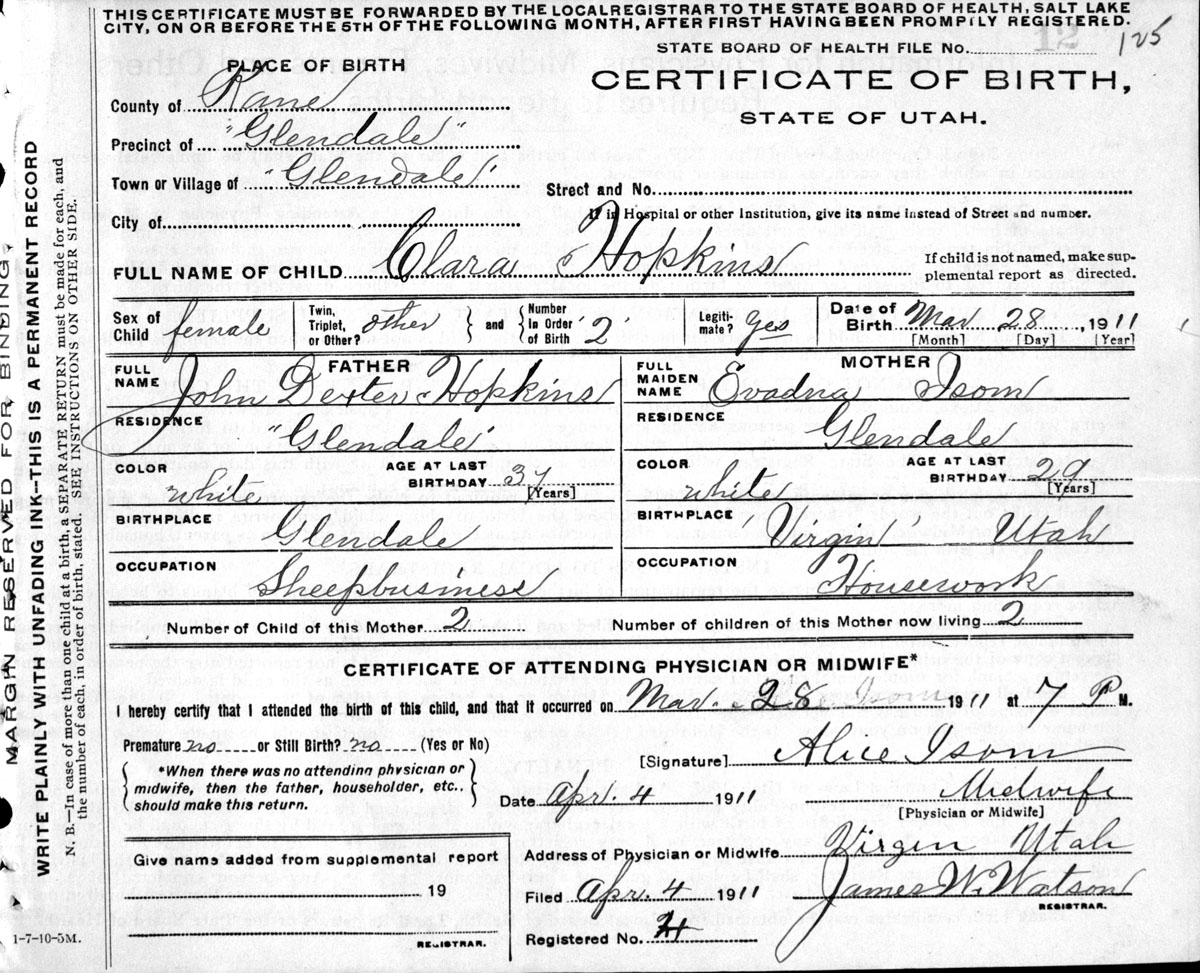 THIS CERTIFICATE MUST BE FORWARDED BY THE LOCALREGISTRAR TO THE STATE BOARD OF HEALTH, SALT LAKE
CITY, ON OR BEFORE THE 5TH OF THE FOLLOWING MONTH, AFTER FIRST HAVING BEEN PROMPTLY REGISTERED.
STATE BOARD OF HEALTH FILE No. 12 125
PLACE OF BIRTH
CERTIFICATE OF BIRTH,
STATE OF UTAH.
County of Kane
Precinct of "Glendale"
Town or Village of "Glendale"
Street and No.
City of
If in Hospital or other Institution, give its name instead of Street and number.
FULL NAME OF CHILD Clara Hopkins
If child is not named, make sup-
plemental report as directed.
Sex of Child female
Twin, Triplet, or Other? other
and Number in Order of Birth 2
Legiti-mate? yes
Date of Birth Mar 28, 1911
[Month] [Day] [Year]
FATHER
FULL NAME John Dexter Hopkins
RESIDENCE "Glendale"
COLOR white
AGE AT LAST BIRTHDAY
[Years]
BIRTHPLACE Glendale
OCCUPATION Sheepbusiness
MOTHER
FULL MAIDEN NAME Evadna Isom
RESIDENCE Glendale
COLOR white
AGE AT LAST BIRTHDAY 29
[Years]
BIRTHPLACE "Virgin" Utah
OCCUPATION Housework
Number of Child of this Mother 2
Number of children of this Mother now living 2
CERTIFICATE OF ATTENDING PHYSICIAN OR MIDWIFE*
I hereby certify that I attended the birth of this child, and that it occurred on Mar. 28 1911 at 7 P M.
Premature no or Still Birth? no (Yes or No)
*When there was no attending physician or
midwife, then the father, householder, etc.,
should make this return.
[Signature] Alice Isom
Date Apr. 4 1911 Midwife
[Physician or Midwife]
Give name added from supplemental report
19
REGISTRAR.
Address of Physician or Midwife Virgin Utah
Filed Apr. 4 1911 James W. Watson
REGISTRAR.
Registered No. 4
1-7-10-5M.
MARGIN RESERVED FOR BINDING.
WRITE PLAINLY WITH UNFADING INK—THIS IS A PERMANENT RECORD
N. B.—In case of more than one child at a birth, a SEPARATE RETURN must be made for each, and
the number of each, in order of birth, stated. SEE INSTRUCTIONS ON OTHER SIDE.